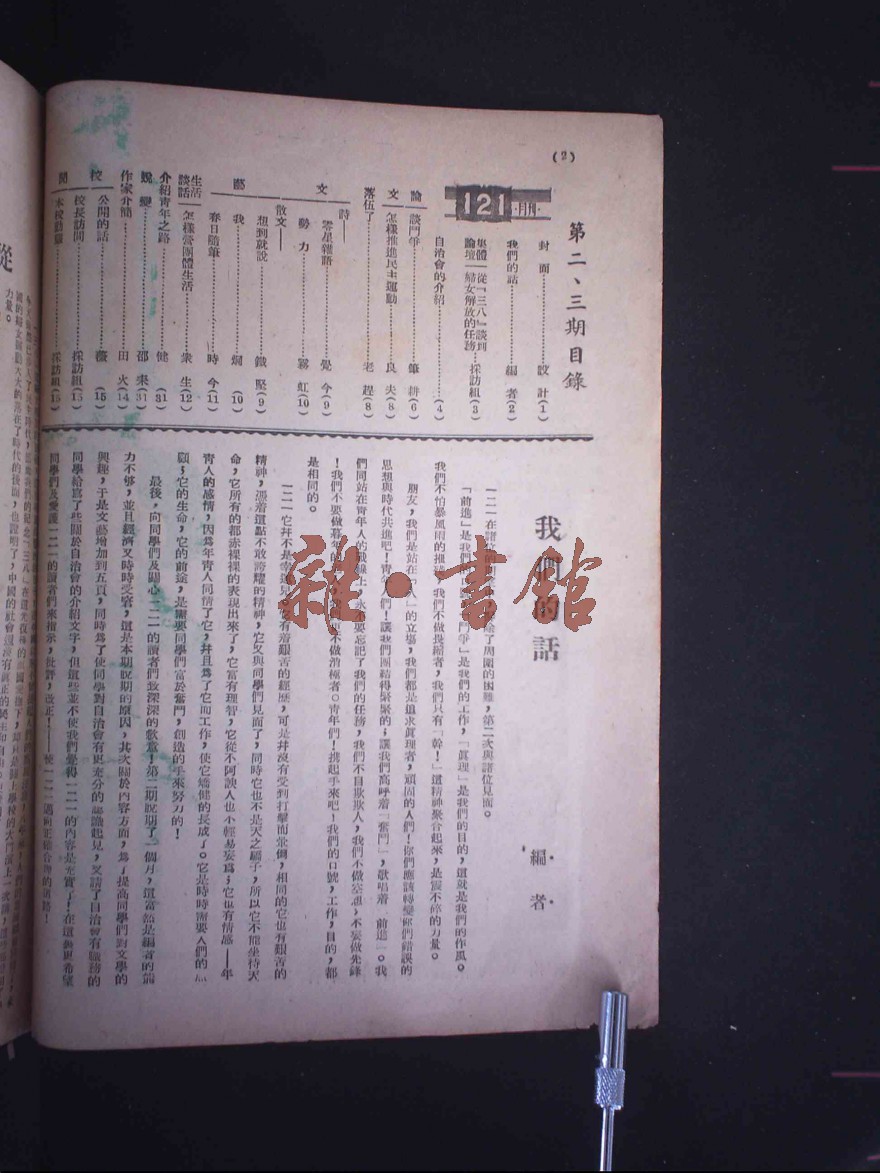 (2)
第二、三期目錄
121 月刊
封面……設計(1)
我們的話……編者(2)
集體論壇 從「三八」談到婦女解放的任務……採訪組(3)
自治會的介紹……(4)
論文
談鬥爭……筆耕(6)
怎樣推進民主運動……良夫(8)
落伍了……老趕(8)
文藝
詩——
零星雜語……覺今(9)
勢力……霧虹(10)
散文——
想到就說……鐵堅(9)
我……烱(10)
春日隨筆……時今(11)
生活談話 怎樣營團體生活……衆生(12)
介紹青年之路……健(31)
蛻變……邵來(31)
作家介簡……田火(14)
校聞
公開的話……薇(15)
校長訪問……採訪組(15)
本校動態……採訪組(15)
我們的話
編者
一二一在諸位的
除了周圍的困難,第二次與諸位見面。
「前進」是我們的
鬥爭」是我們的工作,「眞理」是我們的目的,這就是我們的作風。
我們不怕暴風雨的推殘,我們不做畏縮者,我們只有「幹!」這精神聚合起來,是震不碎的力量。
朋友,我們是站在「人」的立場,我們都是追求眞理者,頑固的人們!你們應該轉變你們錯誤的
思想與時代共進吧!青年人們!讓我們團結得緊緊的;讓我們高呼着「奮鬥」,歌唱着「前進」。我
們同站在青年人的戰線上,永不要忘記了我們的任務,我們不自欺欺人,我們不做空想,不妄做先鋒
!我們不要做暮年的
不做消極者。青年們!携起手來吧!我們的口號,工作,目的,都
是相同的。
一二一它幷不是幸運兒,它有着艱苦的經歷,可是幷沒有受到打擊而氣倒,相同的它也有艱苦的
精神,憑着這點不敢誇耀的精神,它又與同學們見面了,同時它也不是天之驕子,所以它不能坐待天
命,它所有的都赤裸裸的表現出來了,它富有理智,它從不阿諛人也不輕易妄爲;它也有情感——年
青人的感情,因爲年青人同情了它,幷且爲了它而工作,使它矯健的長成了。它是時時需要人們的
顧;它的生命,它的前途,是需要同學們富於奮鬥,創造的手來努力的!
最後,向同學們及關心一二一的讀者們致深深的歉意!第二期脫期了一個月,這當然是編者的能
力不够,並且經濟又時時受窘,這是本期脫期的原因,其次關於內容方面,爲了提高同學們對文學的
興趣,于是文藝增加到五頁,同時爲了使同學對自治會有更充分的認識起見,又請了自治會有職務的
同學給寫了些關於自治會的介紹文字,但這些並不使我們覺得一二一的內容是充實了!在這裏更希望
同學們及愛護一二一的讀者們來指示,批評,改正!——使一二一邁向正確合理的道路!
雜·書館
從
力量。